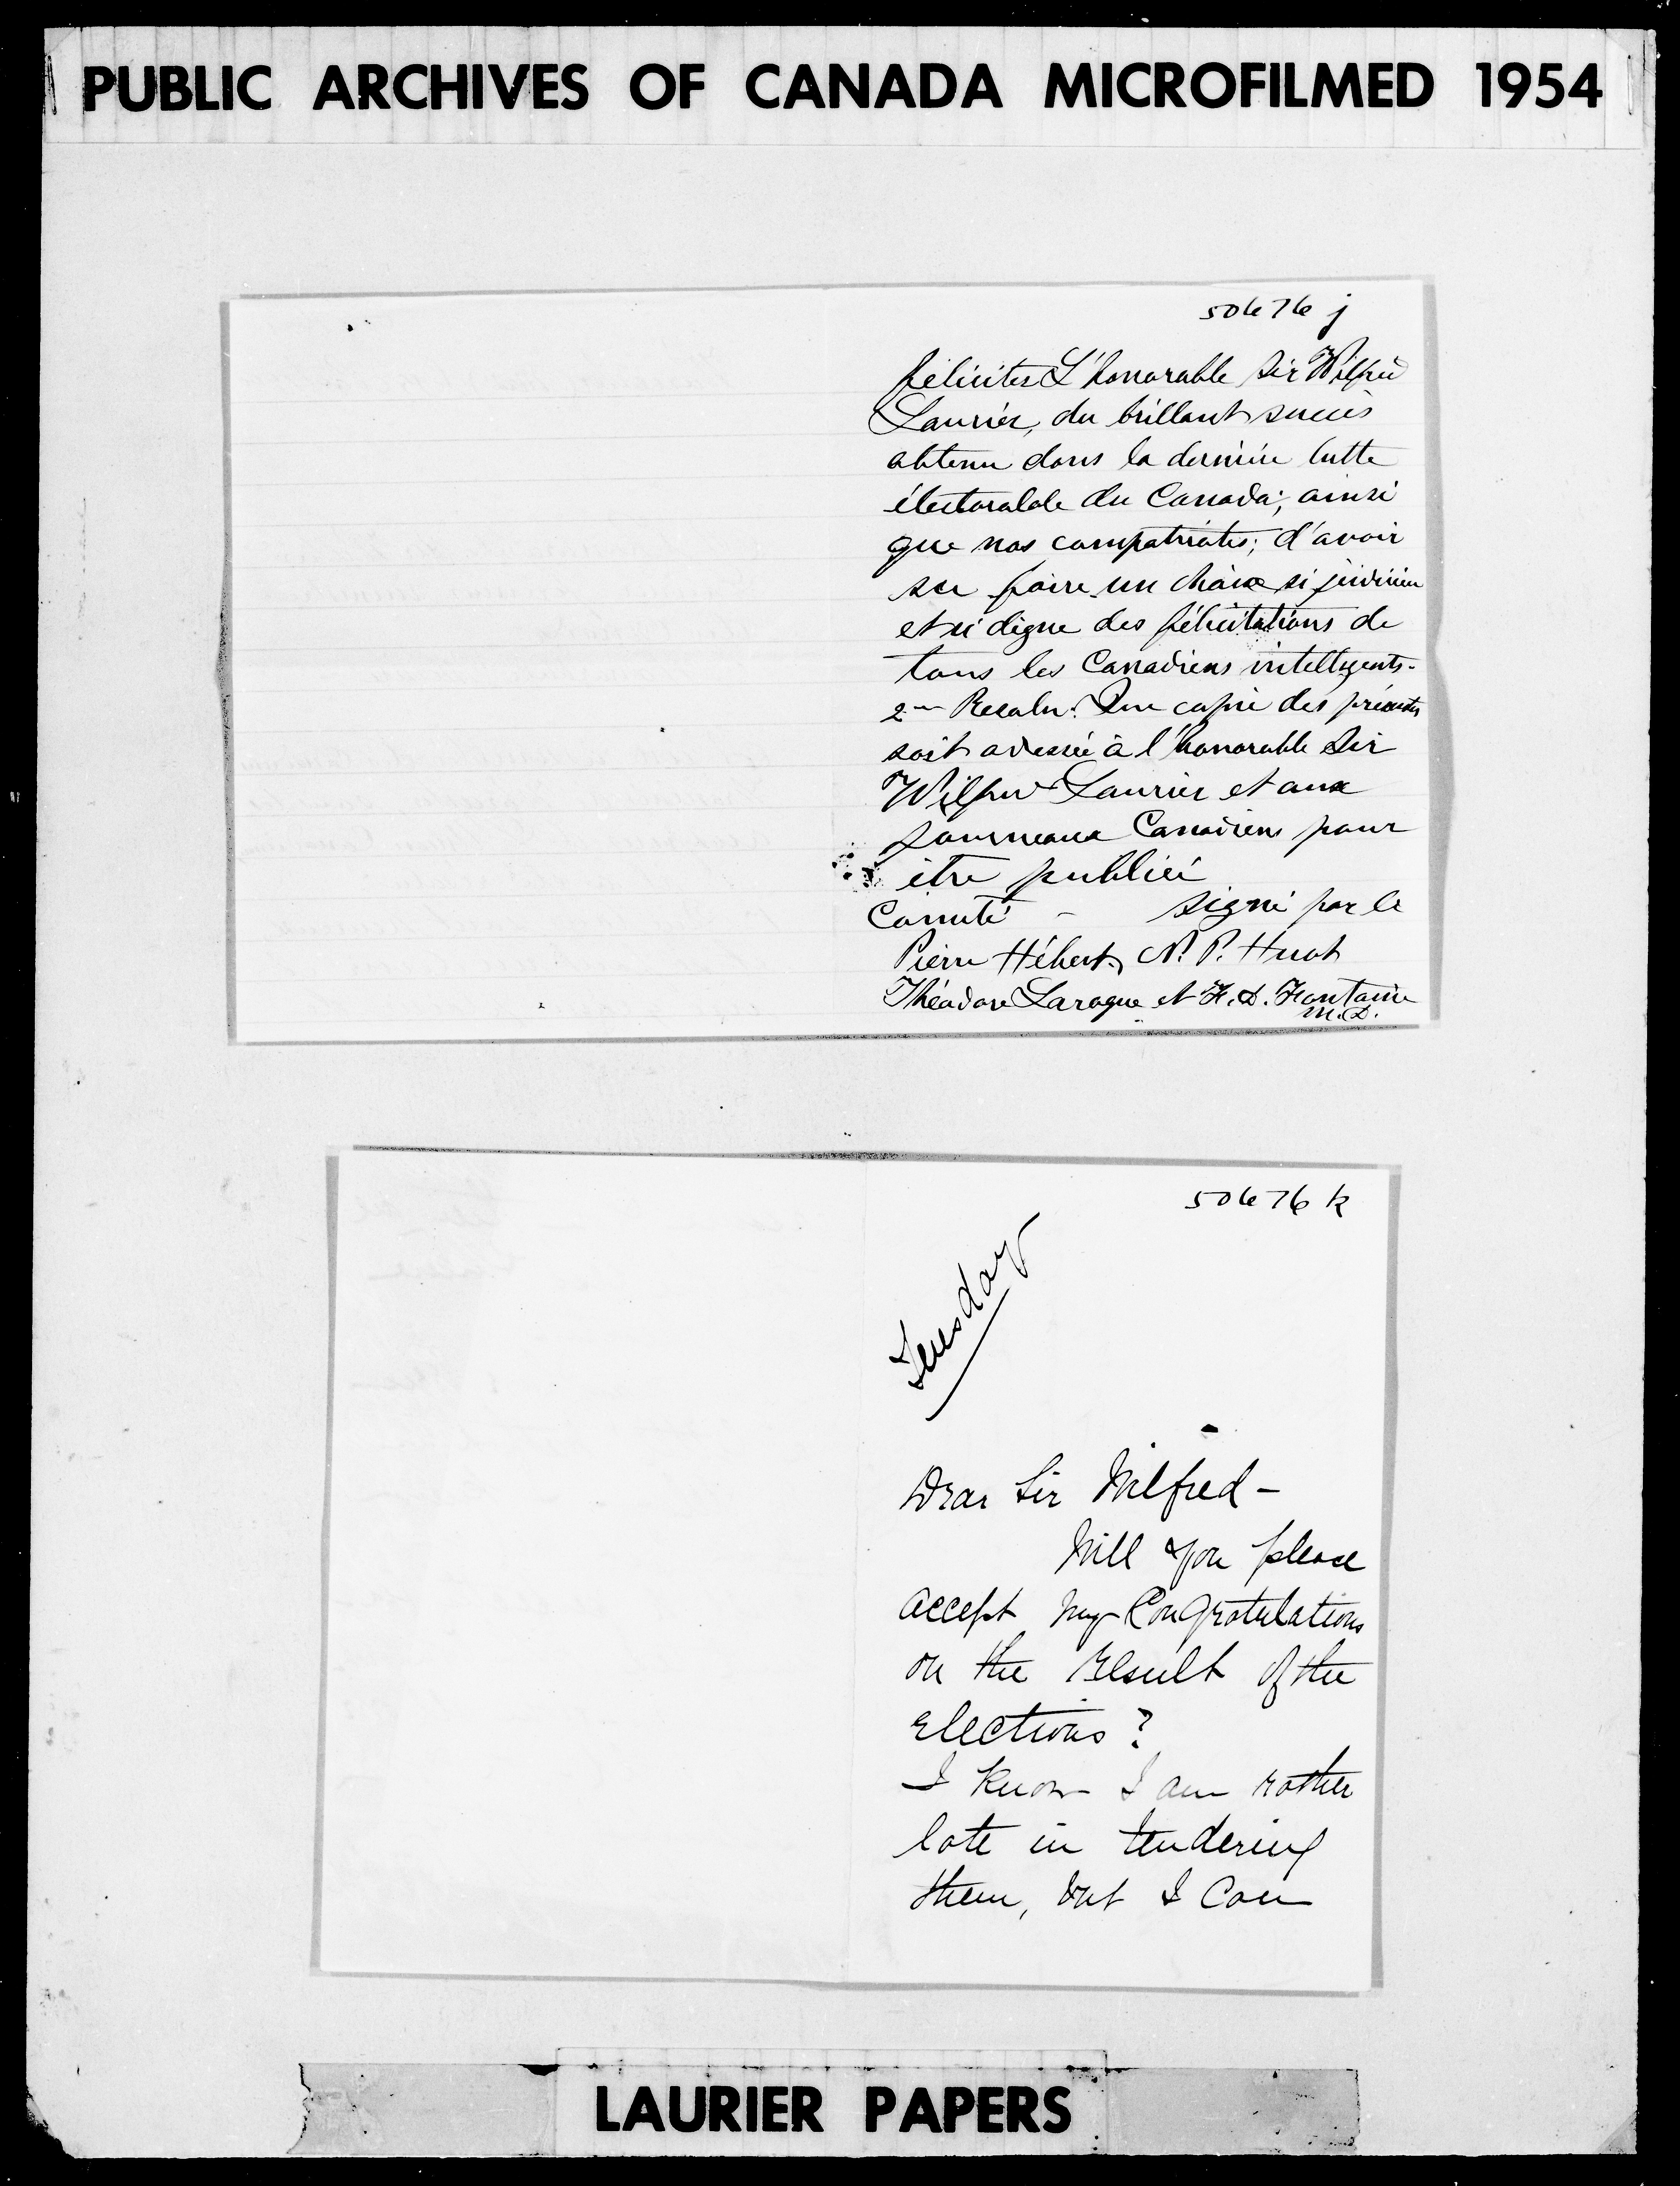 PUBLIC ARCHIVES OF CANADA MICROFILMED 1954
50676 j
féliciter L'honorable Sir Wilfrid
Laurier, du brillant succès
obtenu dans la dernière lutte
électoralale du Canada; ainsi
que nos compatriotes; d'avoir
su faire un choix si judicieux
et si digne des félicitations de
tous les Canadiens intelligents.
2me Resolu: Que copie des présentes
soit adressée à l'honorable Sir
Wilfrid Laurier et aux
journeaux Canadiens pour
être publiée
Comité - signé par le
Pierre Hébert, N. P. Huot
Théodore Laroque et F. D. Fontaine
M.D.
50676 k
Tuesday
Dear Sir Wilfred -
Will you please
accept my Congratulations
on the result of the
elections?
I know I am rather
late in tendering
them, but I Can
LAURIER PAPERS